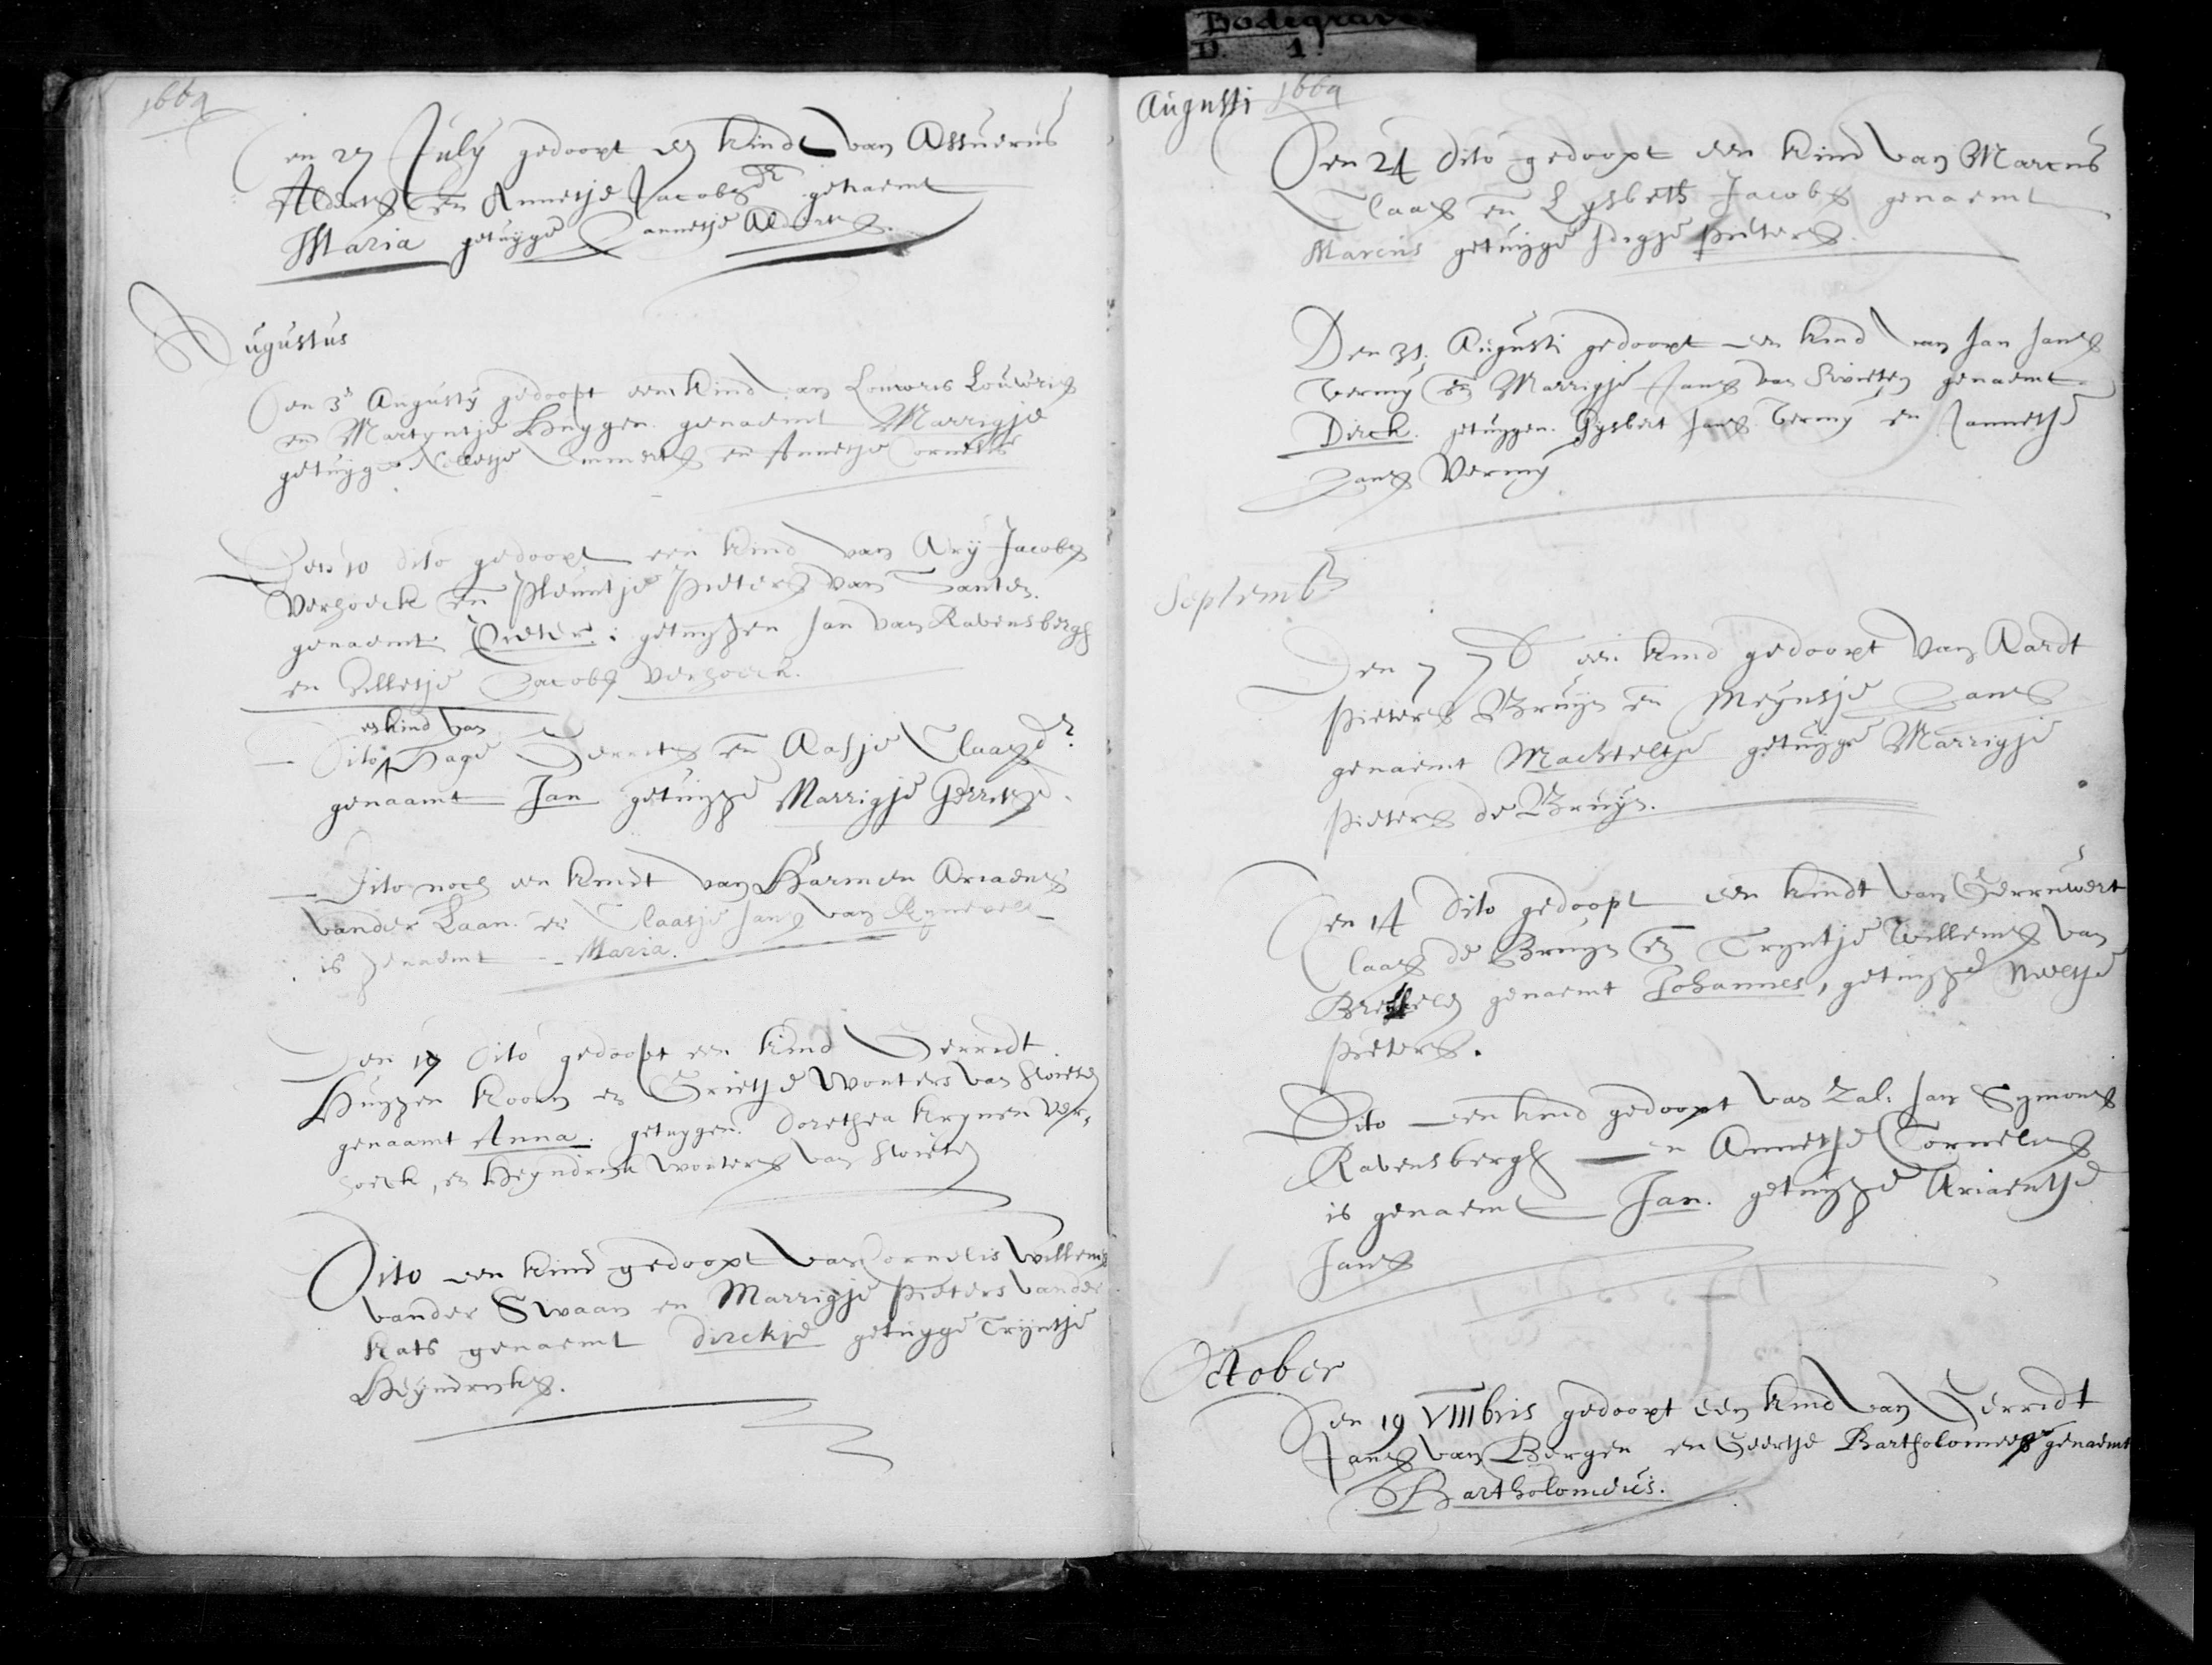 Bodegraven
D. 1.
1669
Den 27 July gedoopt een kindt van Assuerus
Alderts en Annetje Jacobs dr genaemt
Maria getuyge Jannetje Alderts.
Augustus
Den 3e Augusty gedoopt een kind van Louweris Louweris
en Martyntje Huygen genaemt Marrigje
getuyge Neeltje Emmerts en Annetje Cornelis
Den 10 dito gedoopt een kind van Ary Jacobs
Verhoeck en Pleuntje Pieters van Santen
genaemt Pieter: getuygen Jan van Ravensbergh
en Jilletje Jacobs Verhoeck.
een kind van
Dito Page Gerrits en Aasje Claas dr
genaamt Jan getuyge Marrigje Gerrits
Dito noch een kindt van Harmen Ariaens
vander Laan en Claasje Jans van Rynevelt
is genaemt Maria.
Den 17 dito gedoopt een kind Gerredt
Huygen Koorn en Grietje Wouters van Swieten
genaamt Anna. getuygen Dorethea Krynen Ver,
hoeck, en Heyndrick Wouters van Swieten
Dito een kind gedoopt van Cornelis Willems
vander Swaan en Marrigje Pieters vander
Kats genaemt dirckje getuyge Tryntje
Heyndricks.
Augusti 1669
Den 24 dito gedoopt een kind van Marcus
Claas en Lysbeth Jacobs genaemt
Marcus getuyge Pieters.
Den 31. Augusti gedoopt een kind van Jan Jans
Vermy en Marrigje Jans van Swieten genaemt
Dirck. getuygen. Gysbert Jans Vermy en Jannetje
Jans Vermy
Septemb
Den 7 7b een kind gedoopt van Aardt
Pieters Bruyn en Meynsje Jans
genaemt Machteltje getuyge Marrigje
Pieters de Bruyn.
Den 14 dito gedoopt een kindt van Gerruwert
Claas de Bruyn en Tryntje Willems van
genaemt Johannes, getuyge Neeltje
Pieters.
Dito een kind gedoopt van Zal: Jan Symons
Ravensbergh en Annetje Cornelis
is genaemt Jan. getuyge Ariaentje
Jans
October
Den 19 VIIIbris gedoopt een kind van Gerredt
Jans van Bergen en Geertje Bartholomees genaemt
Bartholomeus.